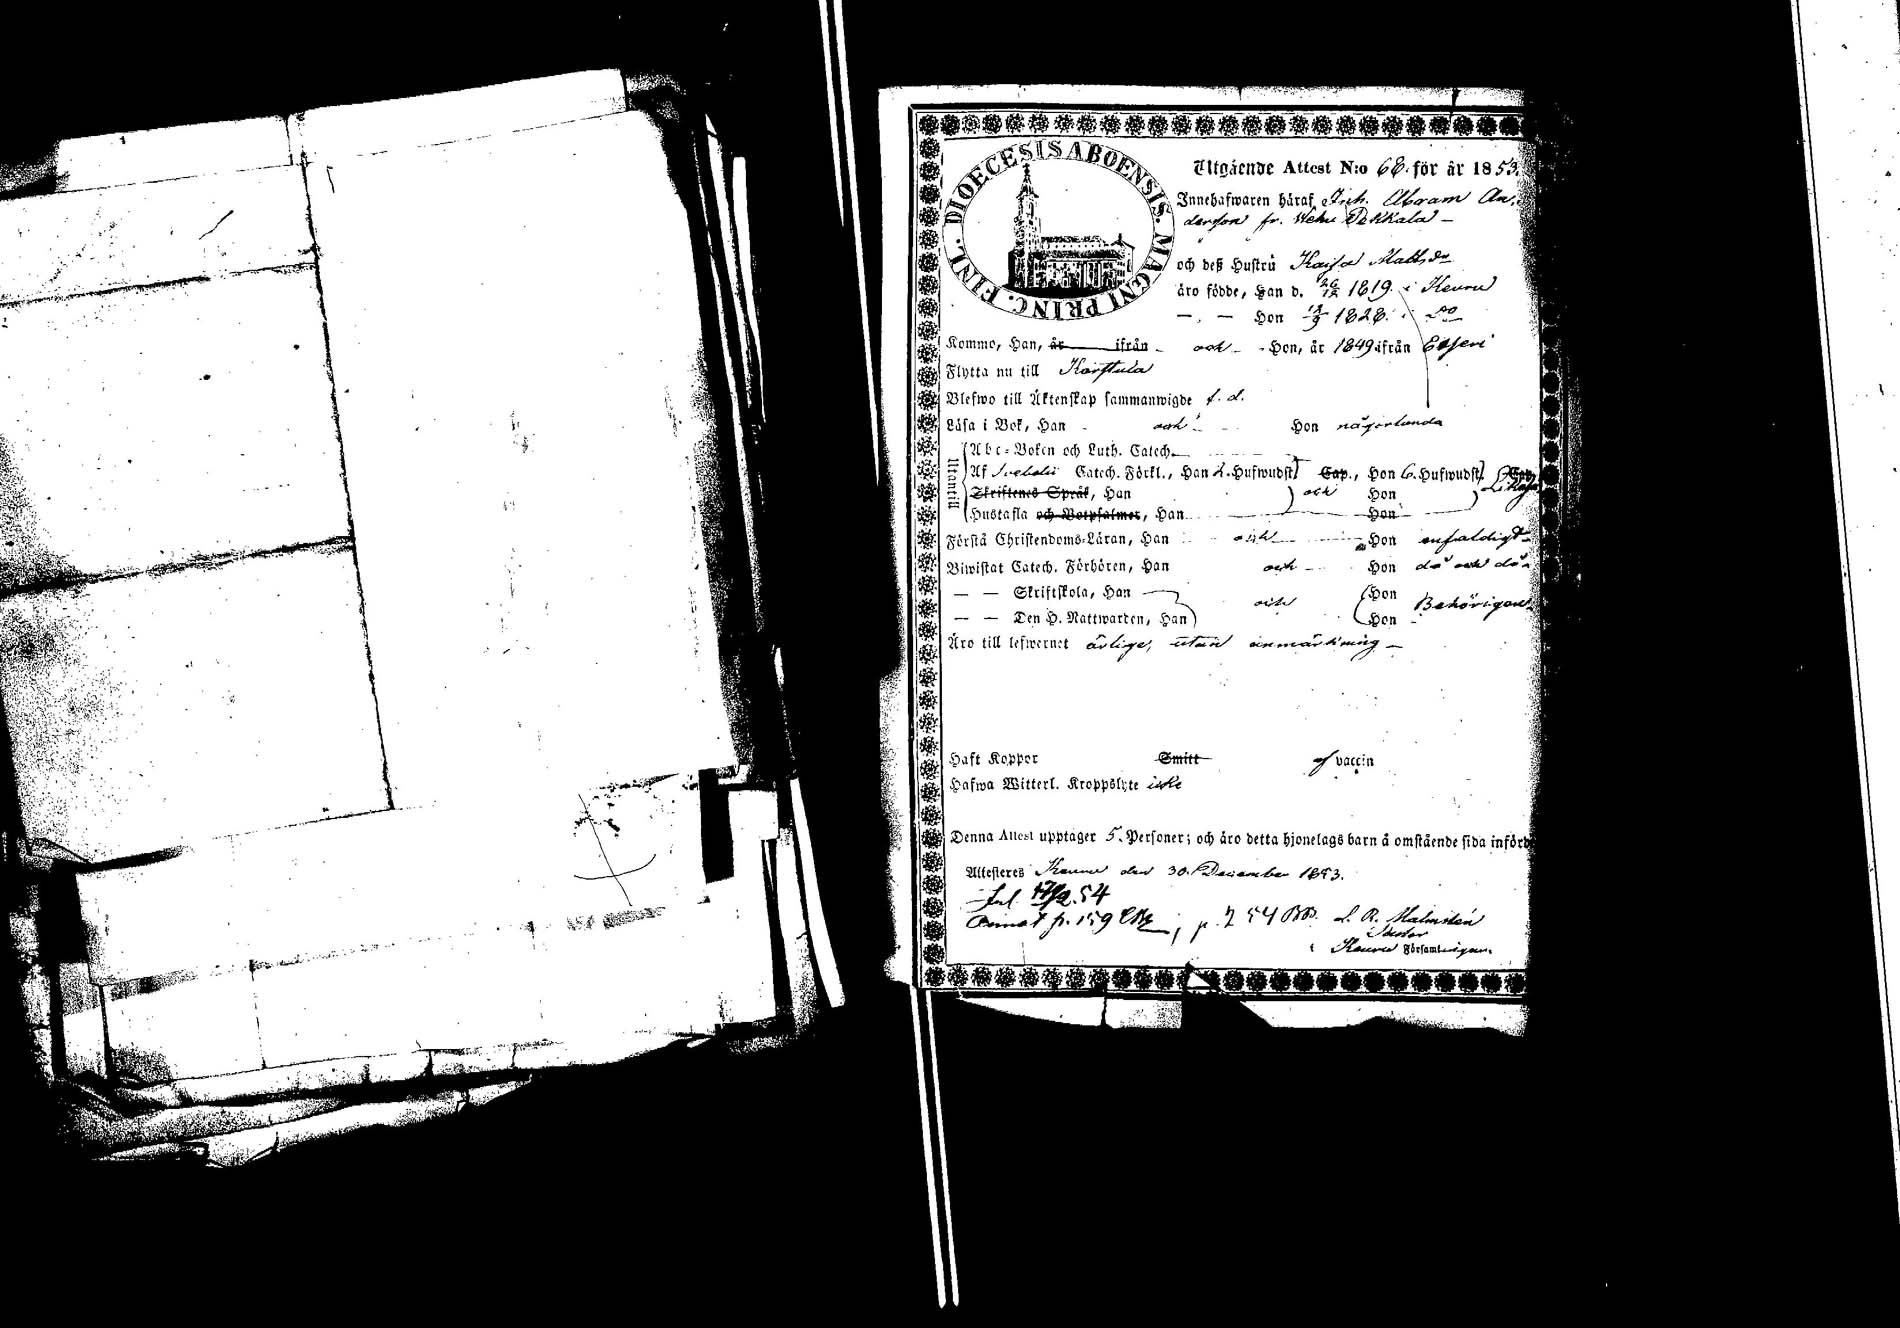 DIOECESIS ABOENSIS. MAGNI PRINC. FINL.
Utgående Attest N:o 68. för år 1853.
Innehafwaren häraf Inh. Abram An-
dersson fr. Wehu Pekkala –
och deß Hustru Kaisa Matts dr
äro födde, Han d. 26/12 1819. i Keuru
— , — Hon 12/9 1828. i do
Kommo, Han, år ifrån och Hon, år 1849 ifrån Etseri
Flytta nu till Karstula
Blefwo till Äktenskap sammanwigde f. d.
Läsa i Bok, Han och Hon någorlunda
Utantill
Abc-Boken och Luth. Catech.
Af Svebelii Catech. Förkl., Han 2. Hufwudst. Cap., Hon 6. Hufwudst. Cap.
Skriftenes Språk, Han och Hon
Hustafla och Botpsalmer, Han Hon
Förstå Christendoms-Läran, Han och Hon enfaldigt
Biwistat Catech. Förhören, Han och Hon då och då
— — Skriftskola, Han och Hon Behörigen
— — Den H. Nattwarden, Han Hon
Äro till lefwernet ärlige, utan anmärkning –
Haft Koppor Smitt af vaccin
Hafwa Witterl. Kroppslyte icke
Denna Attest upptager 5. Personer; och äro detta hjonelags barn å omstående sida införd
Attesteres Keuru den 30. December 1853.
Inl. 17/2 54
p. 159 p. 254 A. R. Malmstén
i Keuru Församlingen.